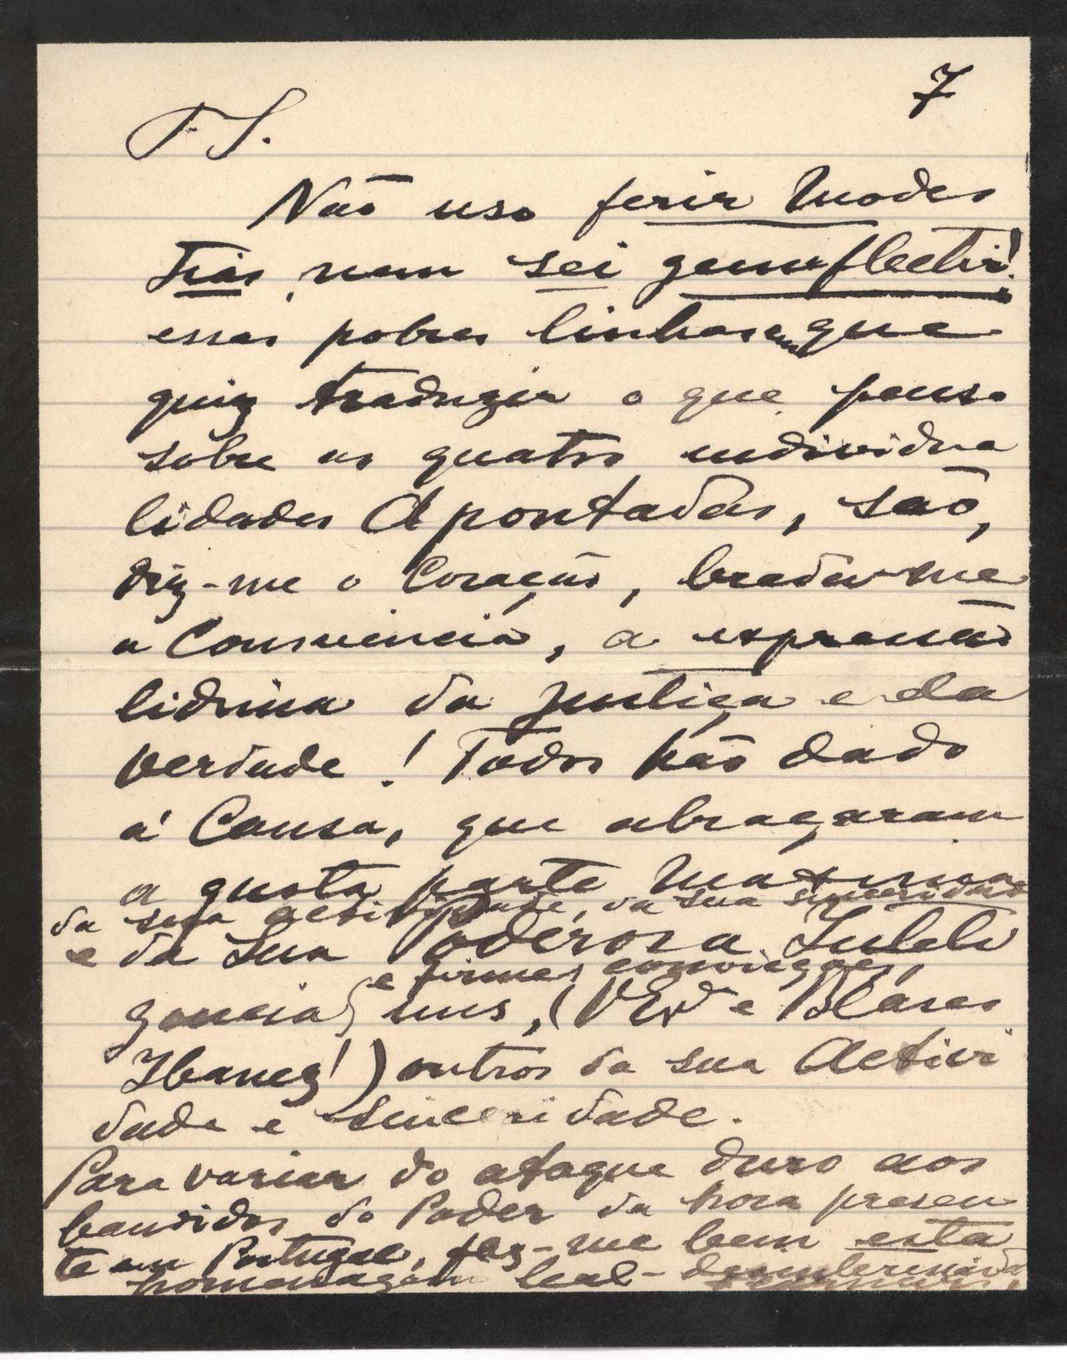 7
F. S.
Não uso ferir Modes
tias, nem sei genuflectir!
essas pobres linhas em que
quiz traduzir o que penso
sobre as quatro individua
lidades Apontadas, são,
diz-me o Coração, brada-me
a Consciencia, a expressão
lidima da Justiça e da
verdade! Todos hão dado
á Causa, que abraçaram
a quota parte Maxima
da sua actividade, da sua sinceridade
e da Sua Poderosa Intelli
gencia e firmes convicções,
uns, (VExª e Blasco
Ibanez!) outros da sua Activi
dade e Sinceridade.
Para variar do ataque duro aos
bandidos do Poder da hora presen
te em Portugal, fez-me bem esta
homenagem leal - desinteressada